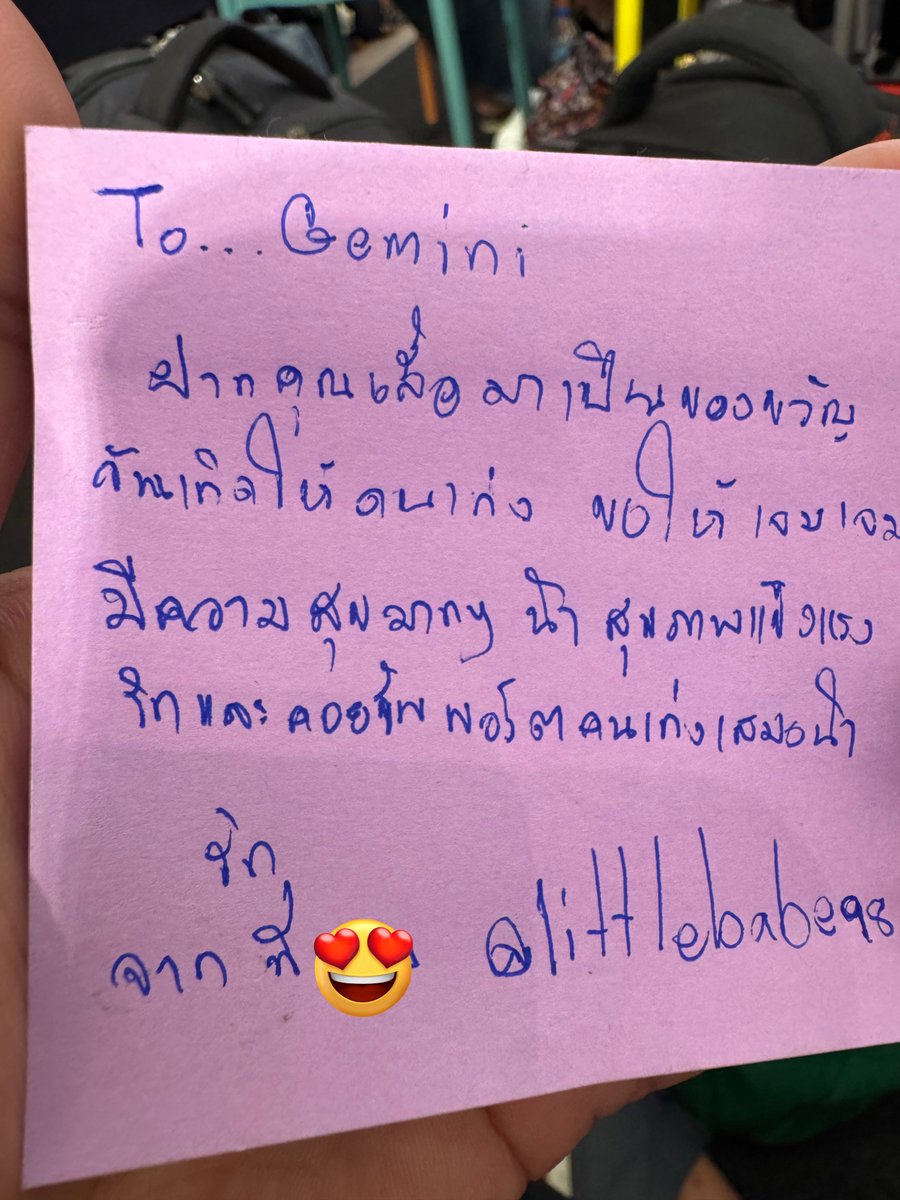 To... Gemini
ฝากคุณเสื้อมาเป็นของขวัญ
วันเกิดให้คนเก่ง ขอให้เจมเจม
มีความสุขมากๆ น้า สุขภาพแข็งแรง
รักและคอยซัพพอร์ตคนเก่งเสมอน้า
รัก
จาก ที่ @littlebabe98